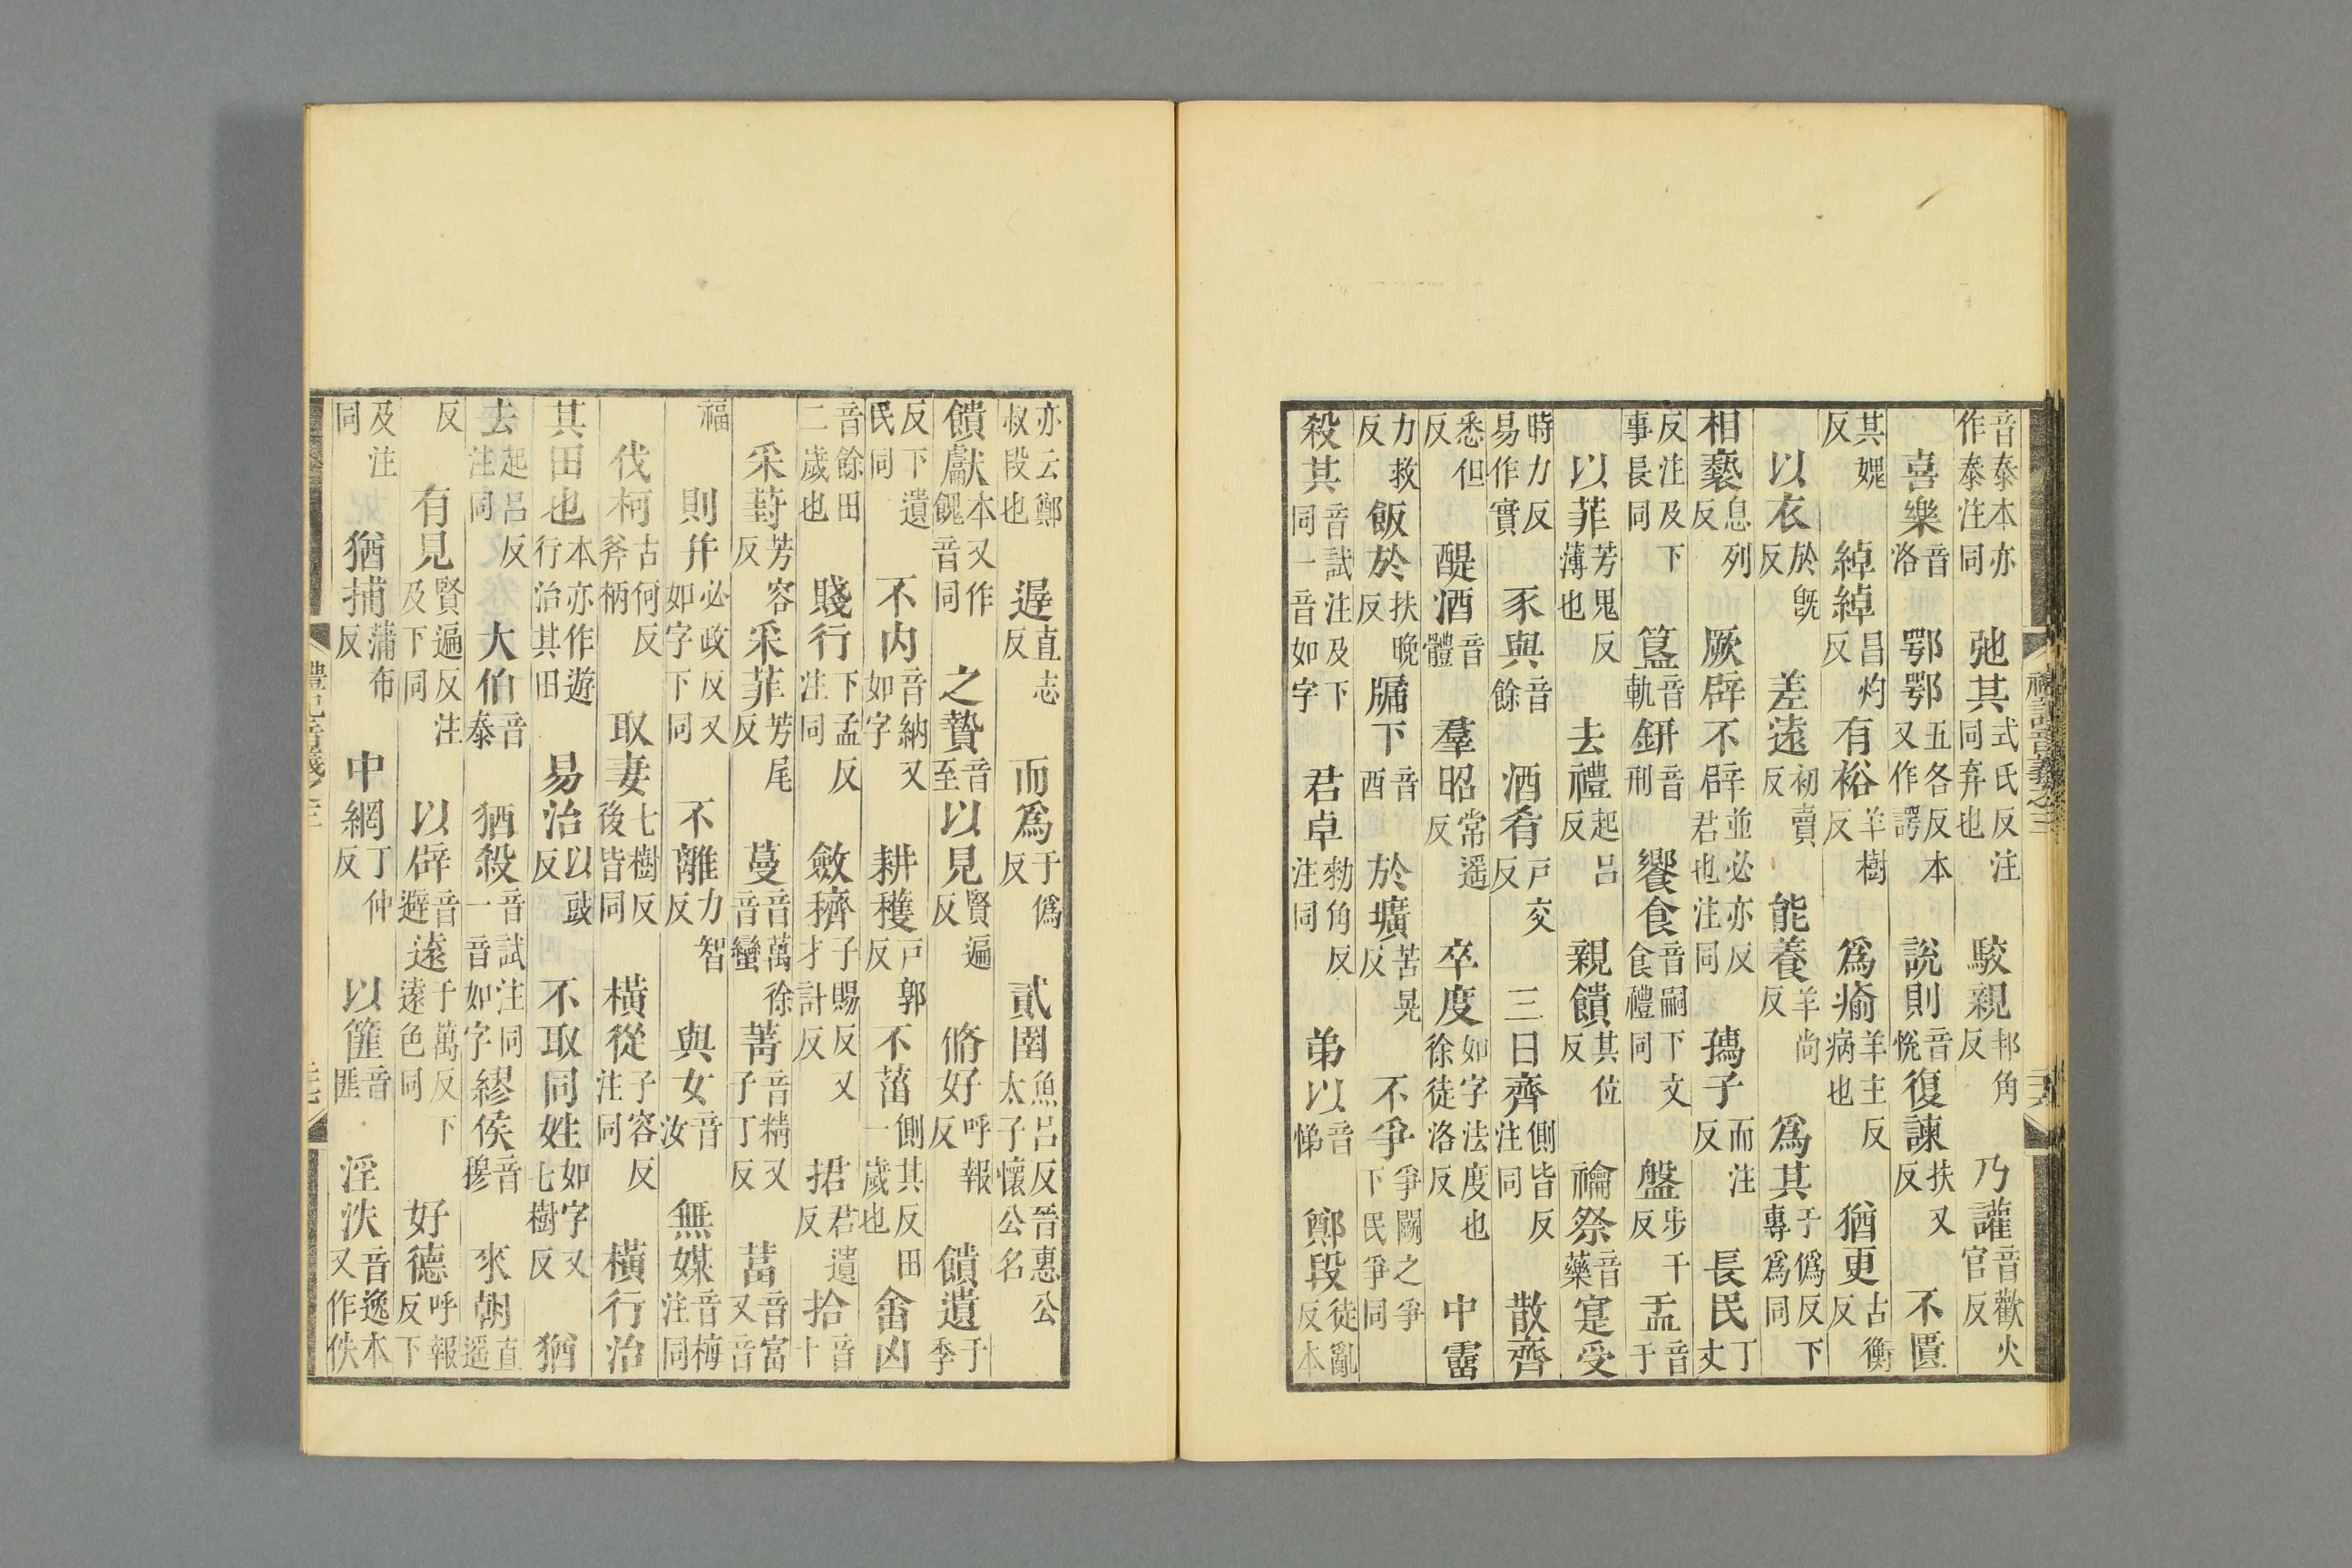 音泰本亦作泰注同 弛其式氏反注同弃也 駮親邦角反 乃讙音歡火官反
喜樂音洛 鄂鄂五各反本又作諤 說則音悅 復諫扶又反 不匱
其媿反 綽綽昌灼反 有裕羊樹反 爲瘉羊主反病也 猶更古衡反
以衣於旣反 差遠初賣反 能養羊尚反 爲其于僞反下專爲同
相褻息列反 厥辟不辟並必亦反君也注同 孺子而注反 長民丁丈
反注及下事長同 簋音軌 鉶音刑 饗食音嗣下文食禮同 盤步干反 盂音于
以菲芳鬼反薄也 去禮起呂反 親饋其位反 禴祭音藥 寔受
時力反易作實 豕與音餘 酒肴戶交反 三日齊側皆反注同 散齊
悉但反 醍酒音體 羣昭常遥反 卒度如字法度也徐徒洛反 中霤
力救反 飯於扶晚反 牖下音酉 於壙苦晃反 不爭爭鬭之爭下民爭同
殺其音試注及下同一音如字 君卓勑角反注同 弟以音悌 鄭段徒亂反本
禮記音義之三
亦云鄭叔段也 遲直志反 而爲于僞反 貳圉魚呂反晉惠公太子懷公名
饋獻本又作餽音同 之贄音至 以見賢遍反 脩好呼報反 饋遺于季
反下遺民同 不内音納又如字 耕穫戶郭反 不菑側其反田一歲也 畬凶
音餘田二歲也 賤行下孟反注同 斂穧子賜反又才計反 捃君遺反 拾音十
采葑芳容反 采菲芳尾反 蔓音萬徐音蠻 菁音精又子丁反 葍音富又音
福 則并必政反又如字下同 不離力智反 與女音汝 無媒音梅注同
伐柯古何反斧柄 取妻七樹反後皆同 橫從子容反注同 橫行治
其田也本亦作遊行治其田 易治以豉反 不取同姓如字又七樹反 猶
去起呂反注同 大伯音泰 猶殺音試注同一音如字 繆侯音穆 來朝直遥
反 有見賢遍反注及下同 以辟音避 遠于萬反下遠色同 好德呼報反下
及注同 猶捕蒲布反 中網丁仲反 以篚音匪 淫泆音逸本又作佚
禮記音義之三